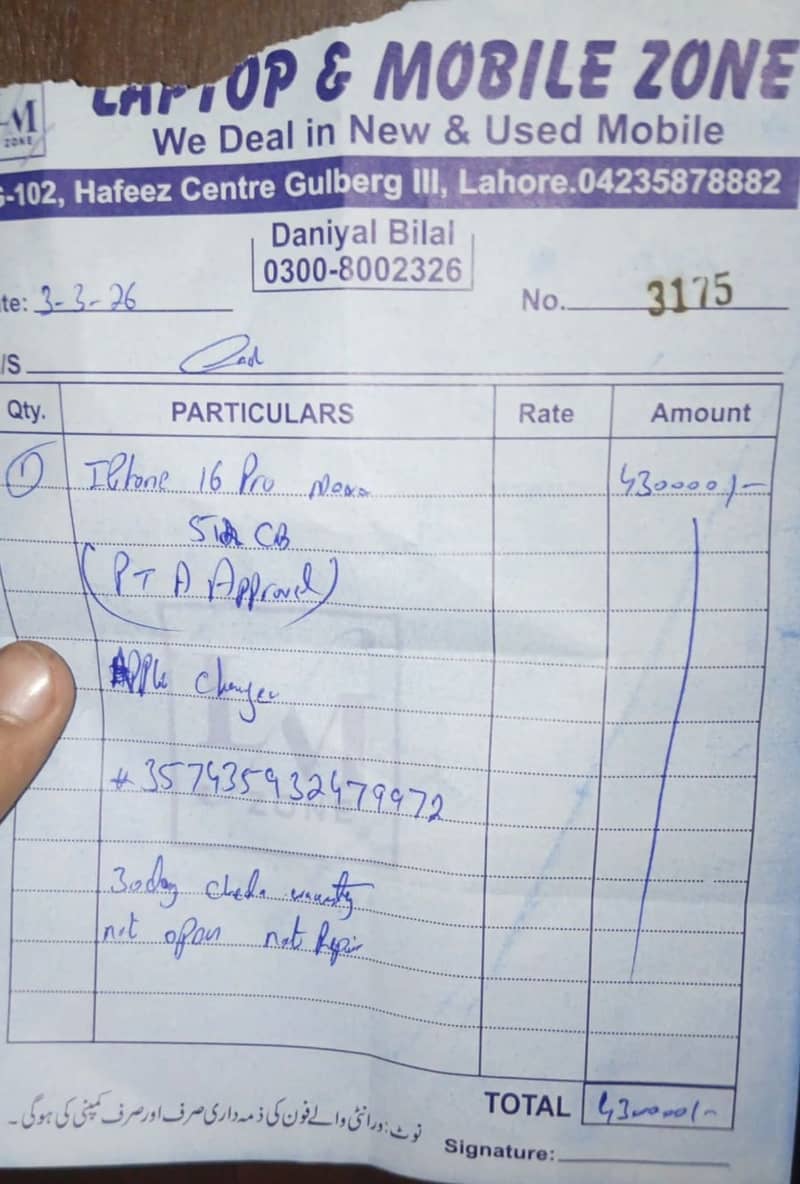 LAPTOP & MOBILE ZONE
LM
ZONE
We Deal in New & Used Mobile
G-102, Hafeez Centre Gulberg III, Lahore.04235878882
Daniyal Bilal
0300-8002326
te: 3-3-26
No. 3175
/S
Qty. PARTICULARS Rate Amount
1 IPhone 16 Pro Max 430000/-
512 GB
(PTA Approved)
Apple Charger
# 357435932479972
30 day check warranty
not open not Repair
TOTAL 430000/-
نوٹ: ورانٹی والے فون کی ذمہ داری صرف اور صرف کمپنی کی ہوگی۔
Signature: